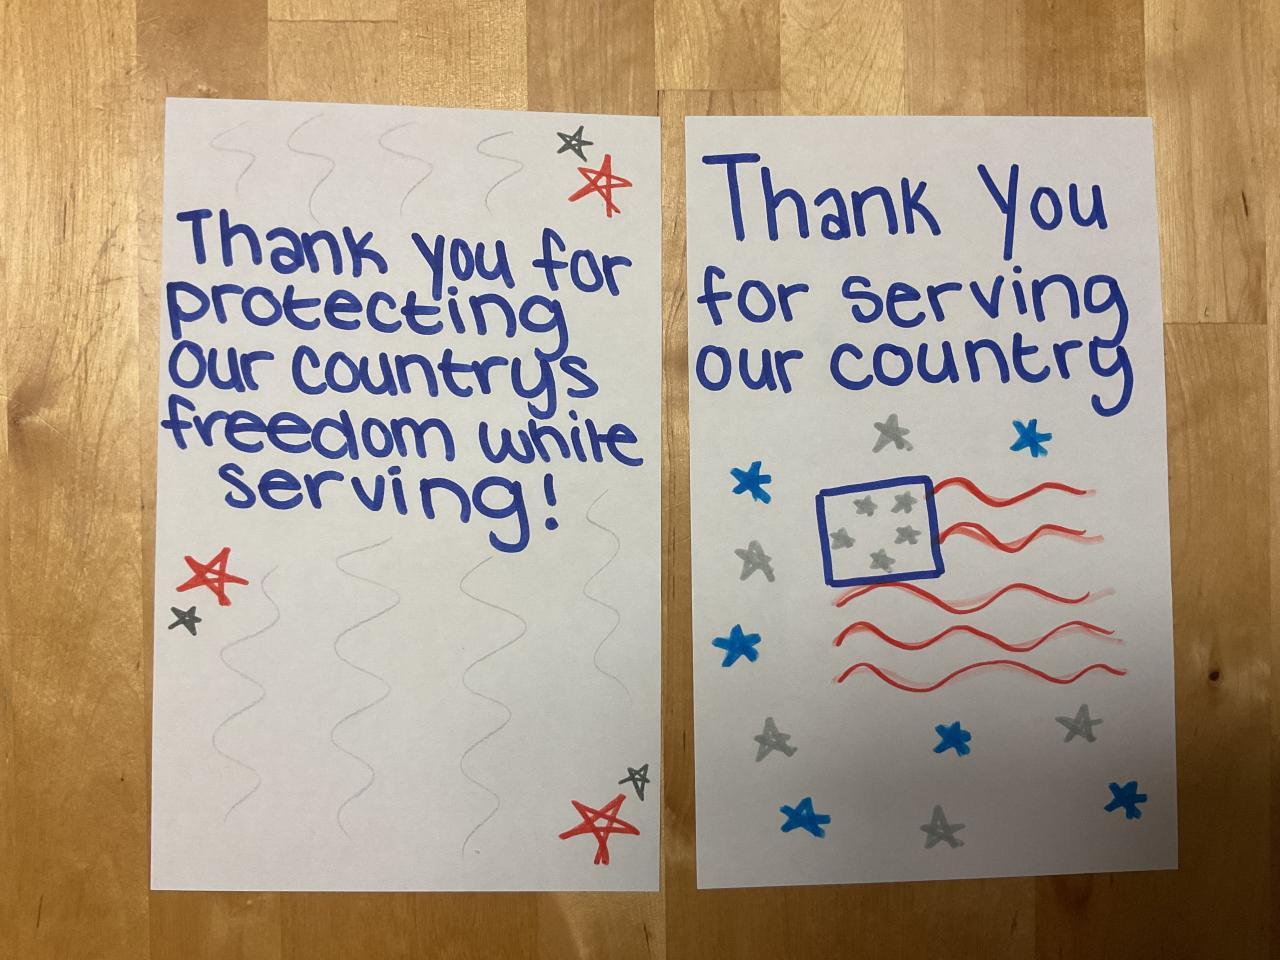 Thank you for
protecting
our countrys
freedom while
serving!
Thank You
for serving
our country